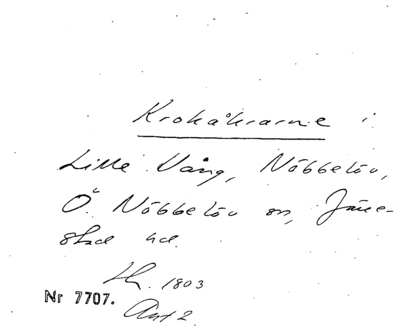 Krokåkrarne i
Lille Vång, Nöbbelöv,
Ö. Nöbbelöv sn, Järre-
stad hd.
Sk. 1803
Nr 7707.
Akt 2